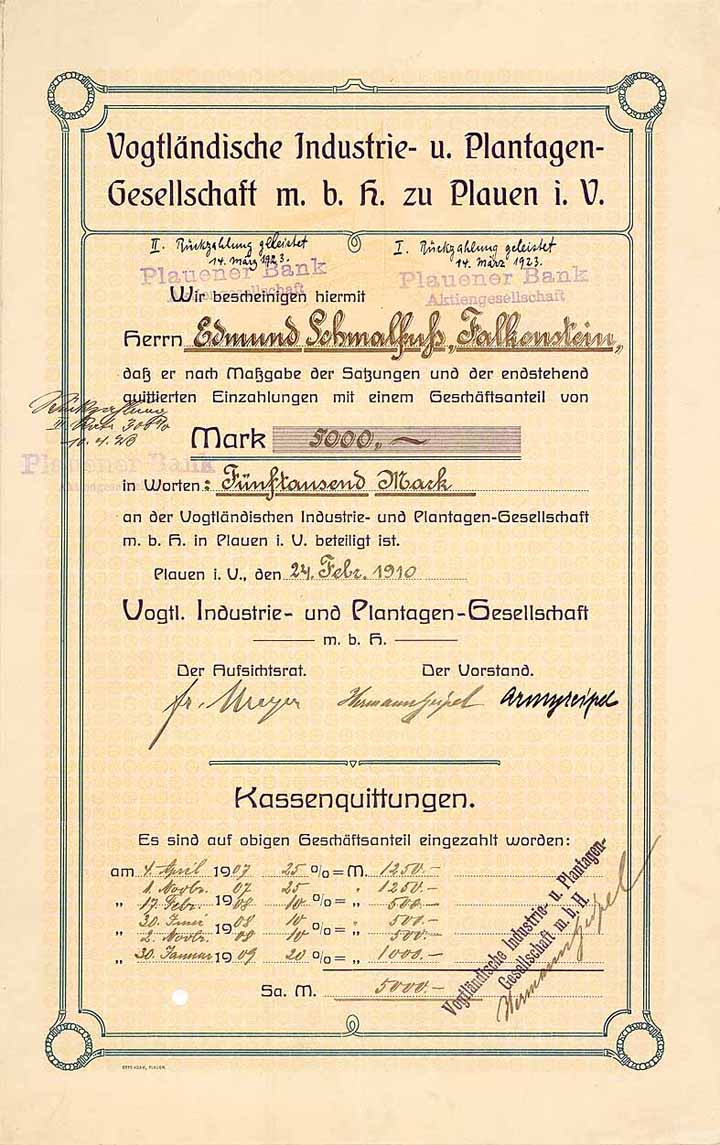 Vogtländische Industrie- u. Plantagen-
Gesellschaft m. b. H. zu Plauen i. V.
II. Rückzahlung geleistet
14. März 1923.
Plauener Bank
Aktiengesellschaft
I. Rückzahlung geleistet
14. März 1923.
Plauener Bank
Aktiengesellschaft
Wir bescheinigen hiermit
Herrn Edmund Schmalfuß, Falkenstein,
daß er nach Maßgabe der Satzungen und der endstehend
quittierten Einzahlungen mit einem Geschäftsanteil von
Rückzahlung
III. Rate 300%
10.4.23
Plauener Bank
Aktiengesellschaft
Mark 5000,—
in Worten: Fünftausend Mark
an der Vogtländischen Industrie- und Plantagen-Gesellschaft
m. b. H. in Plauen i. V. beteiligt ist.
Plauen i. V., den 24. Febr. 1910
Vogtl. Industrie- und Plantagen-Gesellschaft
m. b. H.
Der Aufsichtsrat. Der Vorstand.
fr. Meyer Hermann Seipel
Kassenquittungen.
Es sind auf obigen Geschäftsanteil eingezahlt worden:
am 4. April 1907 25 % = M. 1250.-
1. Novbr. 07 25 " 1250.-
" 17. Febr. 1908 10 % = " 500.-
30. Juni 1908 10 500.-
" 2. Novbr. 08 10 % = " 500.-
" 30. Januar 1909 20 % = " 1000.-
Sa. M. 5000.-
Vogtländische Industrie- u. Plantagen-
Gesellschaft m. b. H.
Hermann Seipel